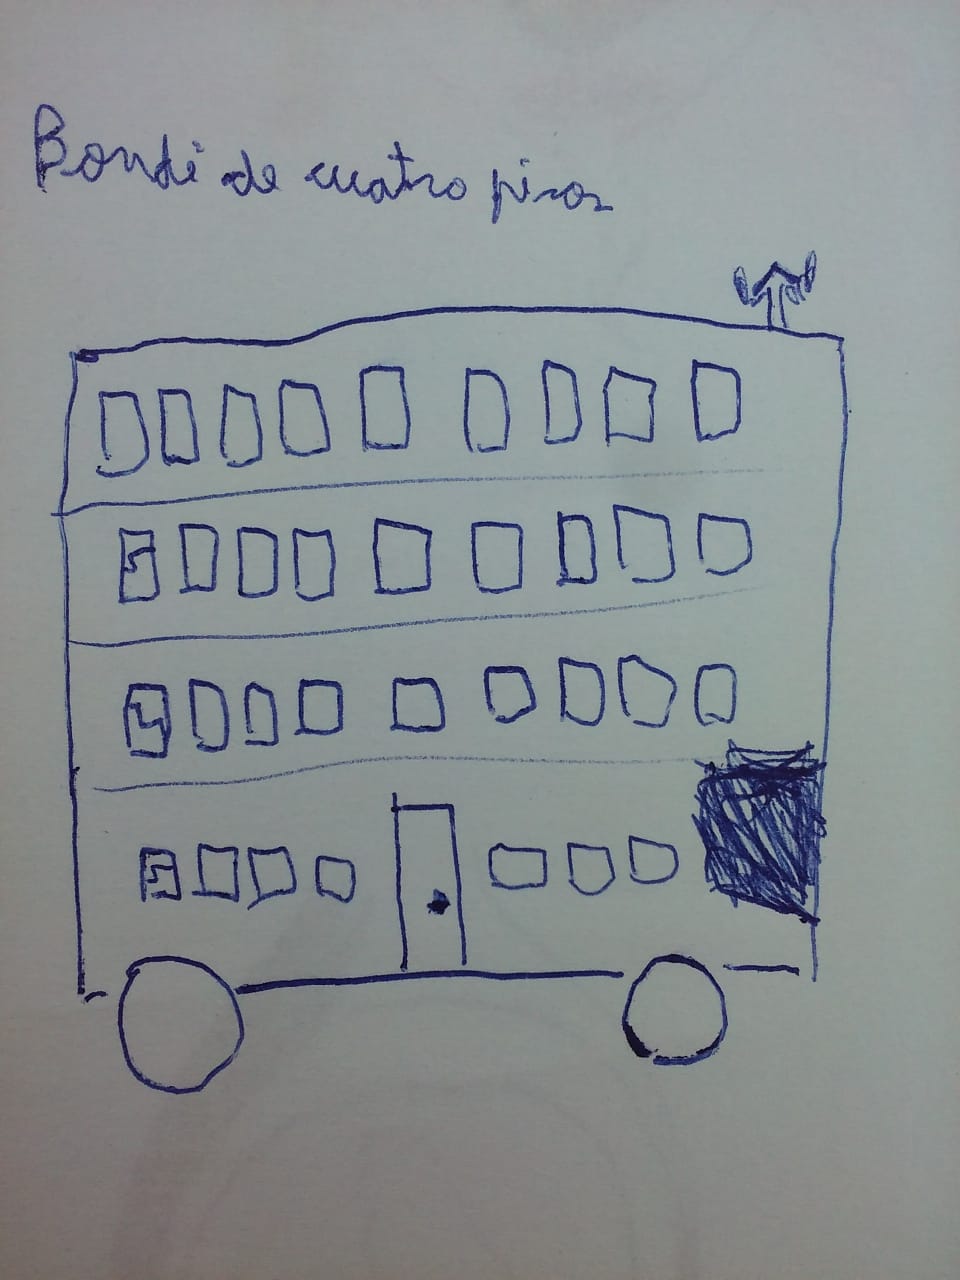 Bondi de cuatro pisos